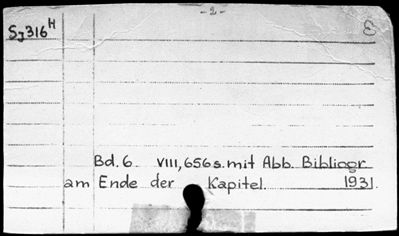 - 2 -
Sj316H
Bd. 6. VIII, 656 s. mit Abb. Bibliogr
am Ende der Kapitel. 1931.